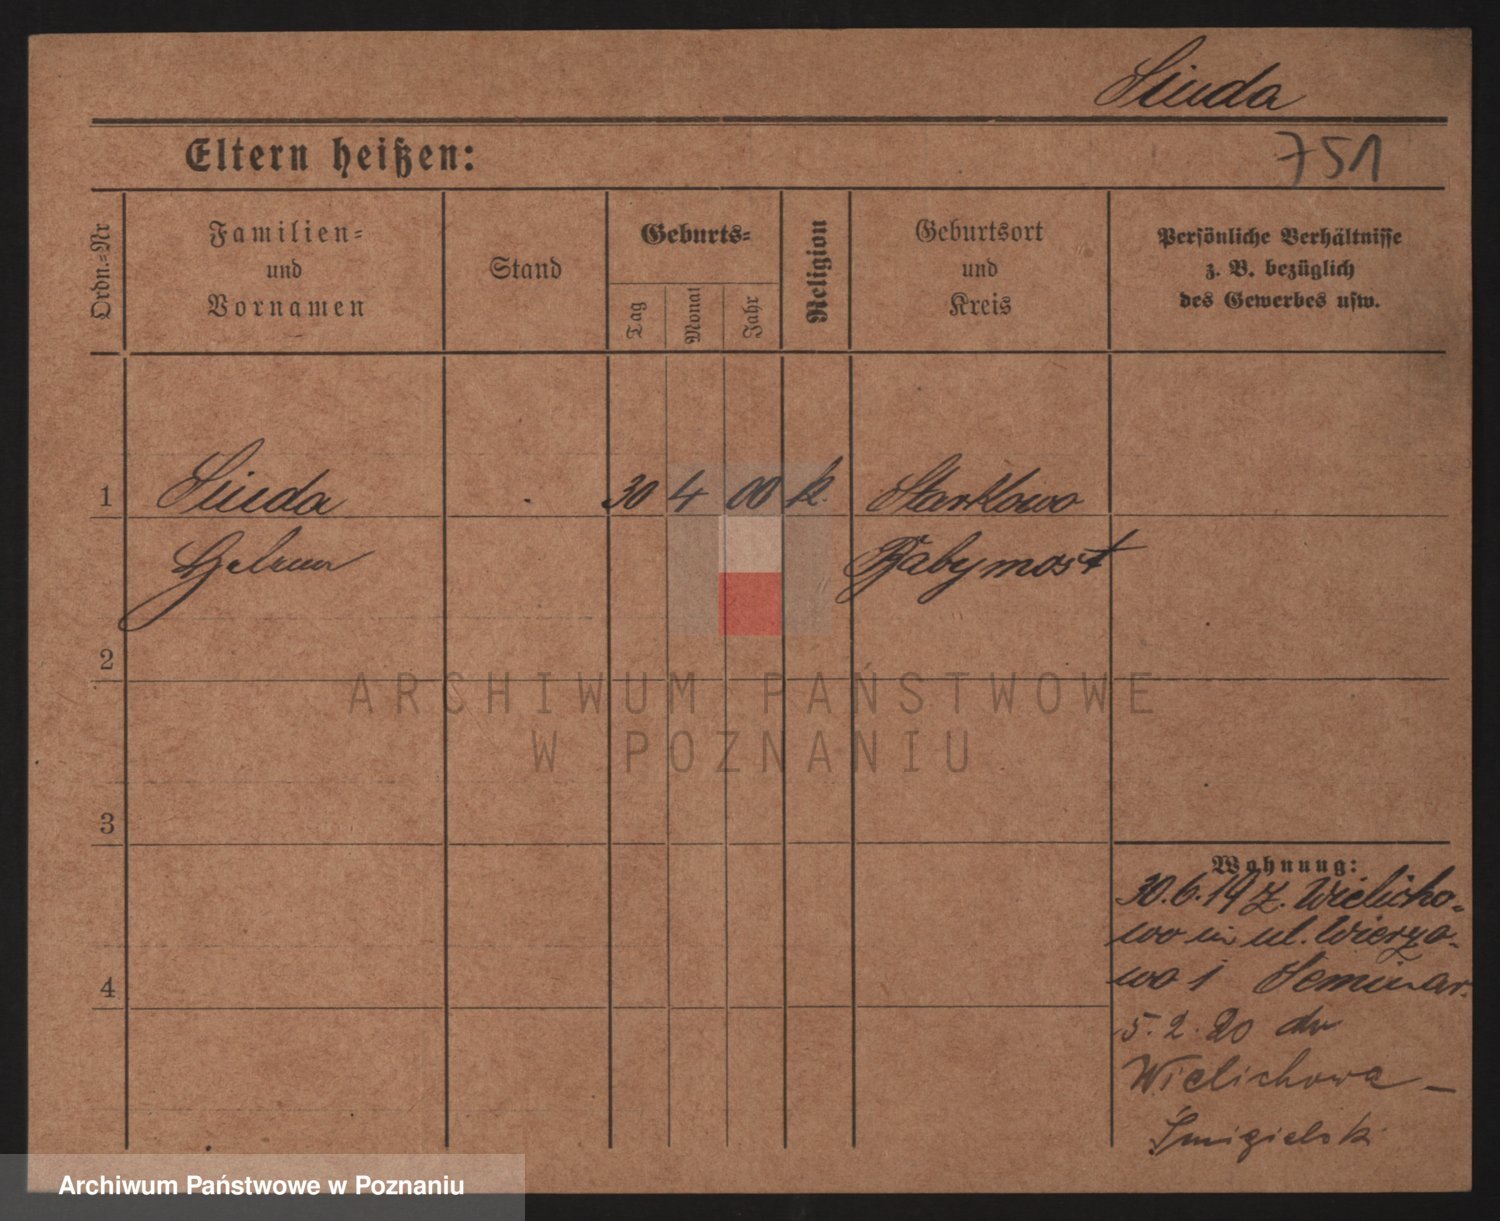 Siuda
Eltern heißen:
751
Ordn.=Nr
Familien=
und
Vornamen
Stand
Geburts=
Tag
Monat
Jahr
Religion
Geburtsort
und
Kreis
Persönliche Verhältnisse
z. B. bezüglich
des Gewerbes usw.
1 Siuda 30 4 00 k. Starkowo
Babymost
2
ARCHIWUM PAŃSTWOWE
W POZNANIU
3
Wohnung:
30.6.19 z. Wielicho-
wo ul. Wierzo-
wa 1 Seminar.
4
5.2.20 do
Wielichowa –
Śmigielski
Archiwum Państwowe w Poznaniu